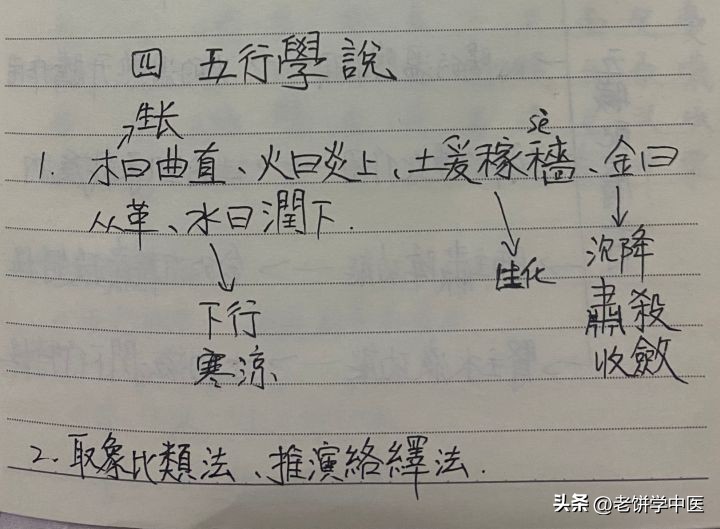 四 五行學說
生长
sè
1. 木曰曲直、火曰炎上、土爰稼穡、金曰
从革、水曰潤下.
沉降
生化
肅殺
下行
收斂
寒涼
2. 取象比類法、推演络繹法.
头条 @老饼学中医